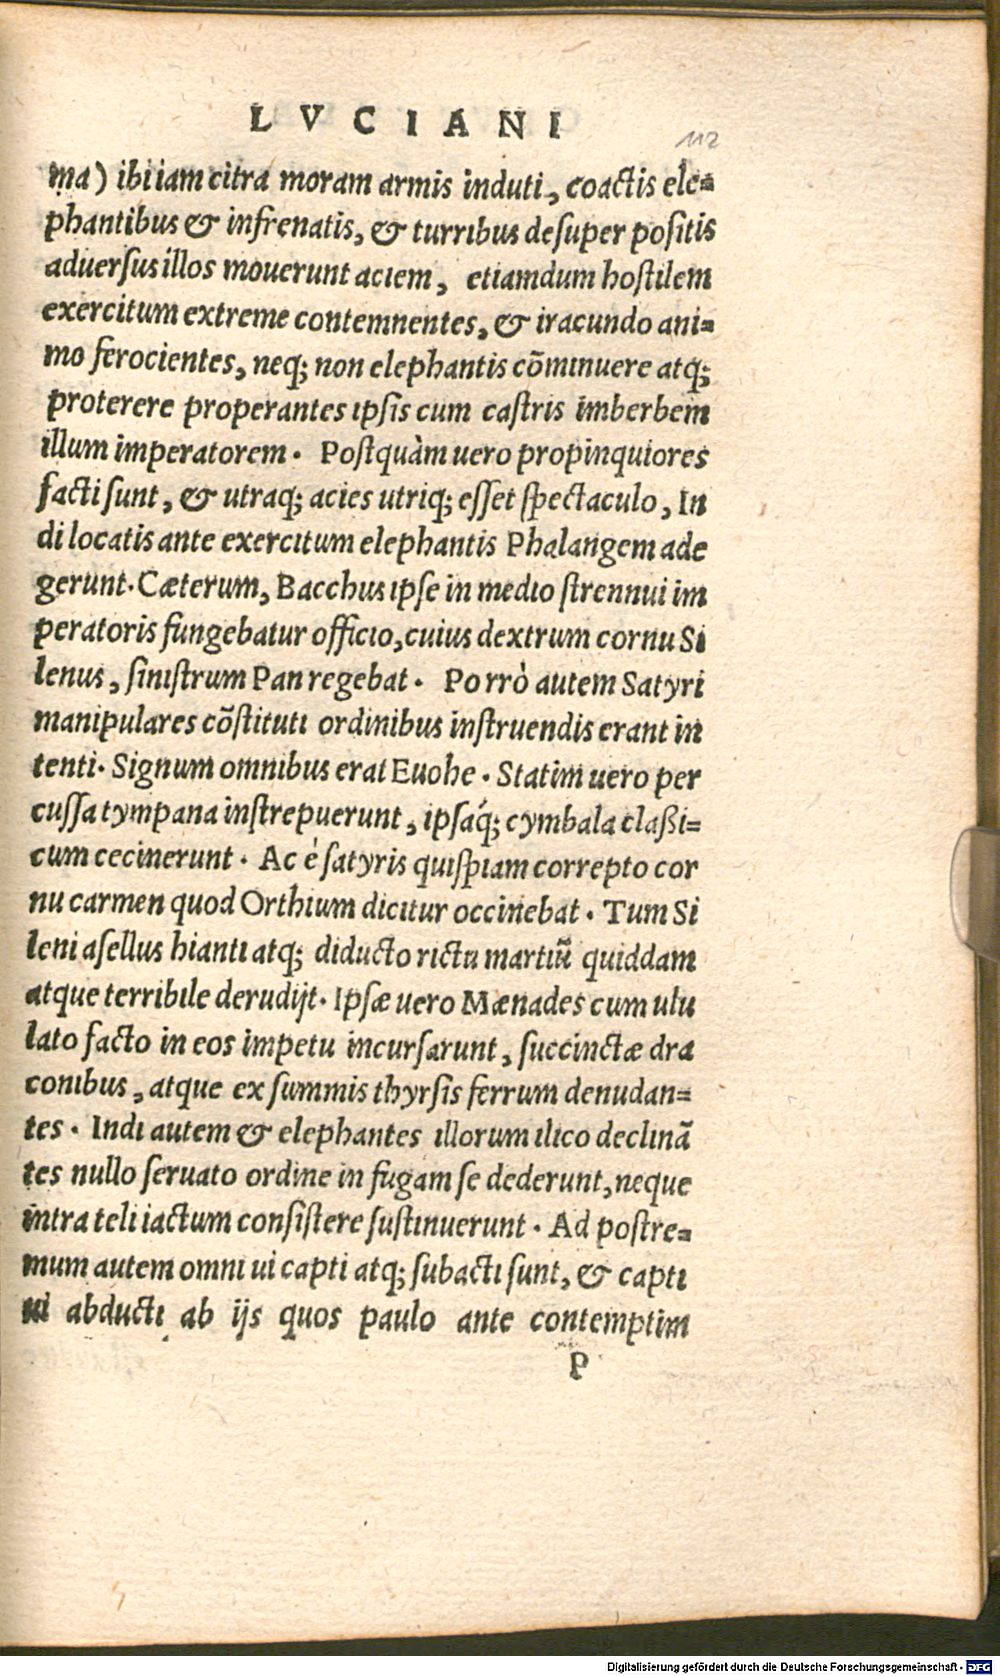 LVCIANI
112
ma) ibi iam citra moram armis induti, coactis ele=
phantibus & infrenatis, & turribus desuper positis
aduersus illos mouerunt aciem, etiamdum hostilem
exercitum extreme contemnentes, & iracundo ani=
mo ferocientes, neq; non elephantis cõminuere atq;
proterere properantes ipsis cum castris imberbem
illum imperatorem. Postquàm uero propinquiores
facti sunt, & utraq; acies utriq; esset spectaculo, In
di locatis ante exercitum elephantis Phalangem ade
gerunt. Cæterum, Bacchus ipse in medio strennui im
peratoris fungebatur officio, cuius dextrum cornu Si
lenus, sinistrum Pan regebat. Porrò autem Satyri
manipulares cõstituti ordinibus instruendis erant in
tenti. Signum omnibus erat Euohe. Statim uero per
cussa tympana instrepuerunt, ipsáq; cymbala classi=
cum cecinerunt. Ac è satyris quispiam correpto cor
nu carmen quod Orthium dicitur occinebat. Tum Si
leni asellus hianti atq; diducto rictu martiũ quiddam
atque terribile derudijt. Ipsæ uero Mænades cum ulu
lato facto in eos impetu incursarunt, succinctæ dra
conibus, atque ex summis thyrsis ferrum denudan=
tes. Indi autem & elephantes illorum ilico declinã
tes nullo seruato ordine in fugam se dederunt, neque
intra teli iactum consistere sustinuerunt. Ad postre=
mum autem omni ui capti atq; subacti sunt, & capti
ui abducti ab ijs quos paulo ante contemptim
P
Digitalisierung gefördert durch die Deutsche Forschungsgemeinschaft - DFG